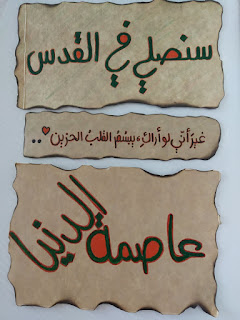 سنصلي في القدس
غير أني لو أراكِ، يبسمُ القلبُ الحزين ..♥
عاصمة الدنيا